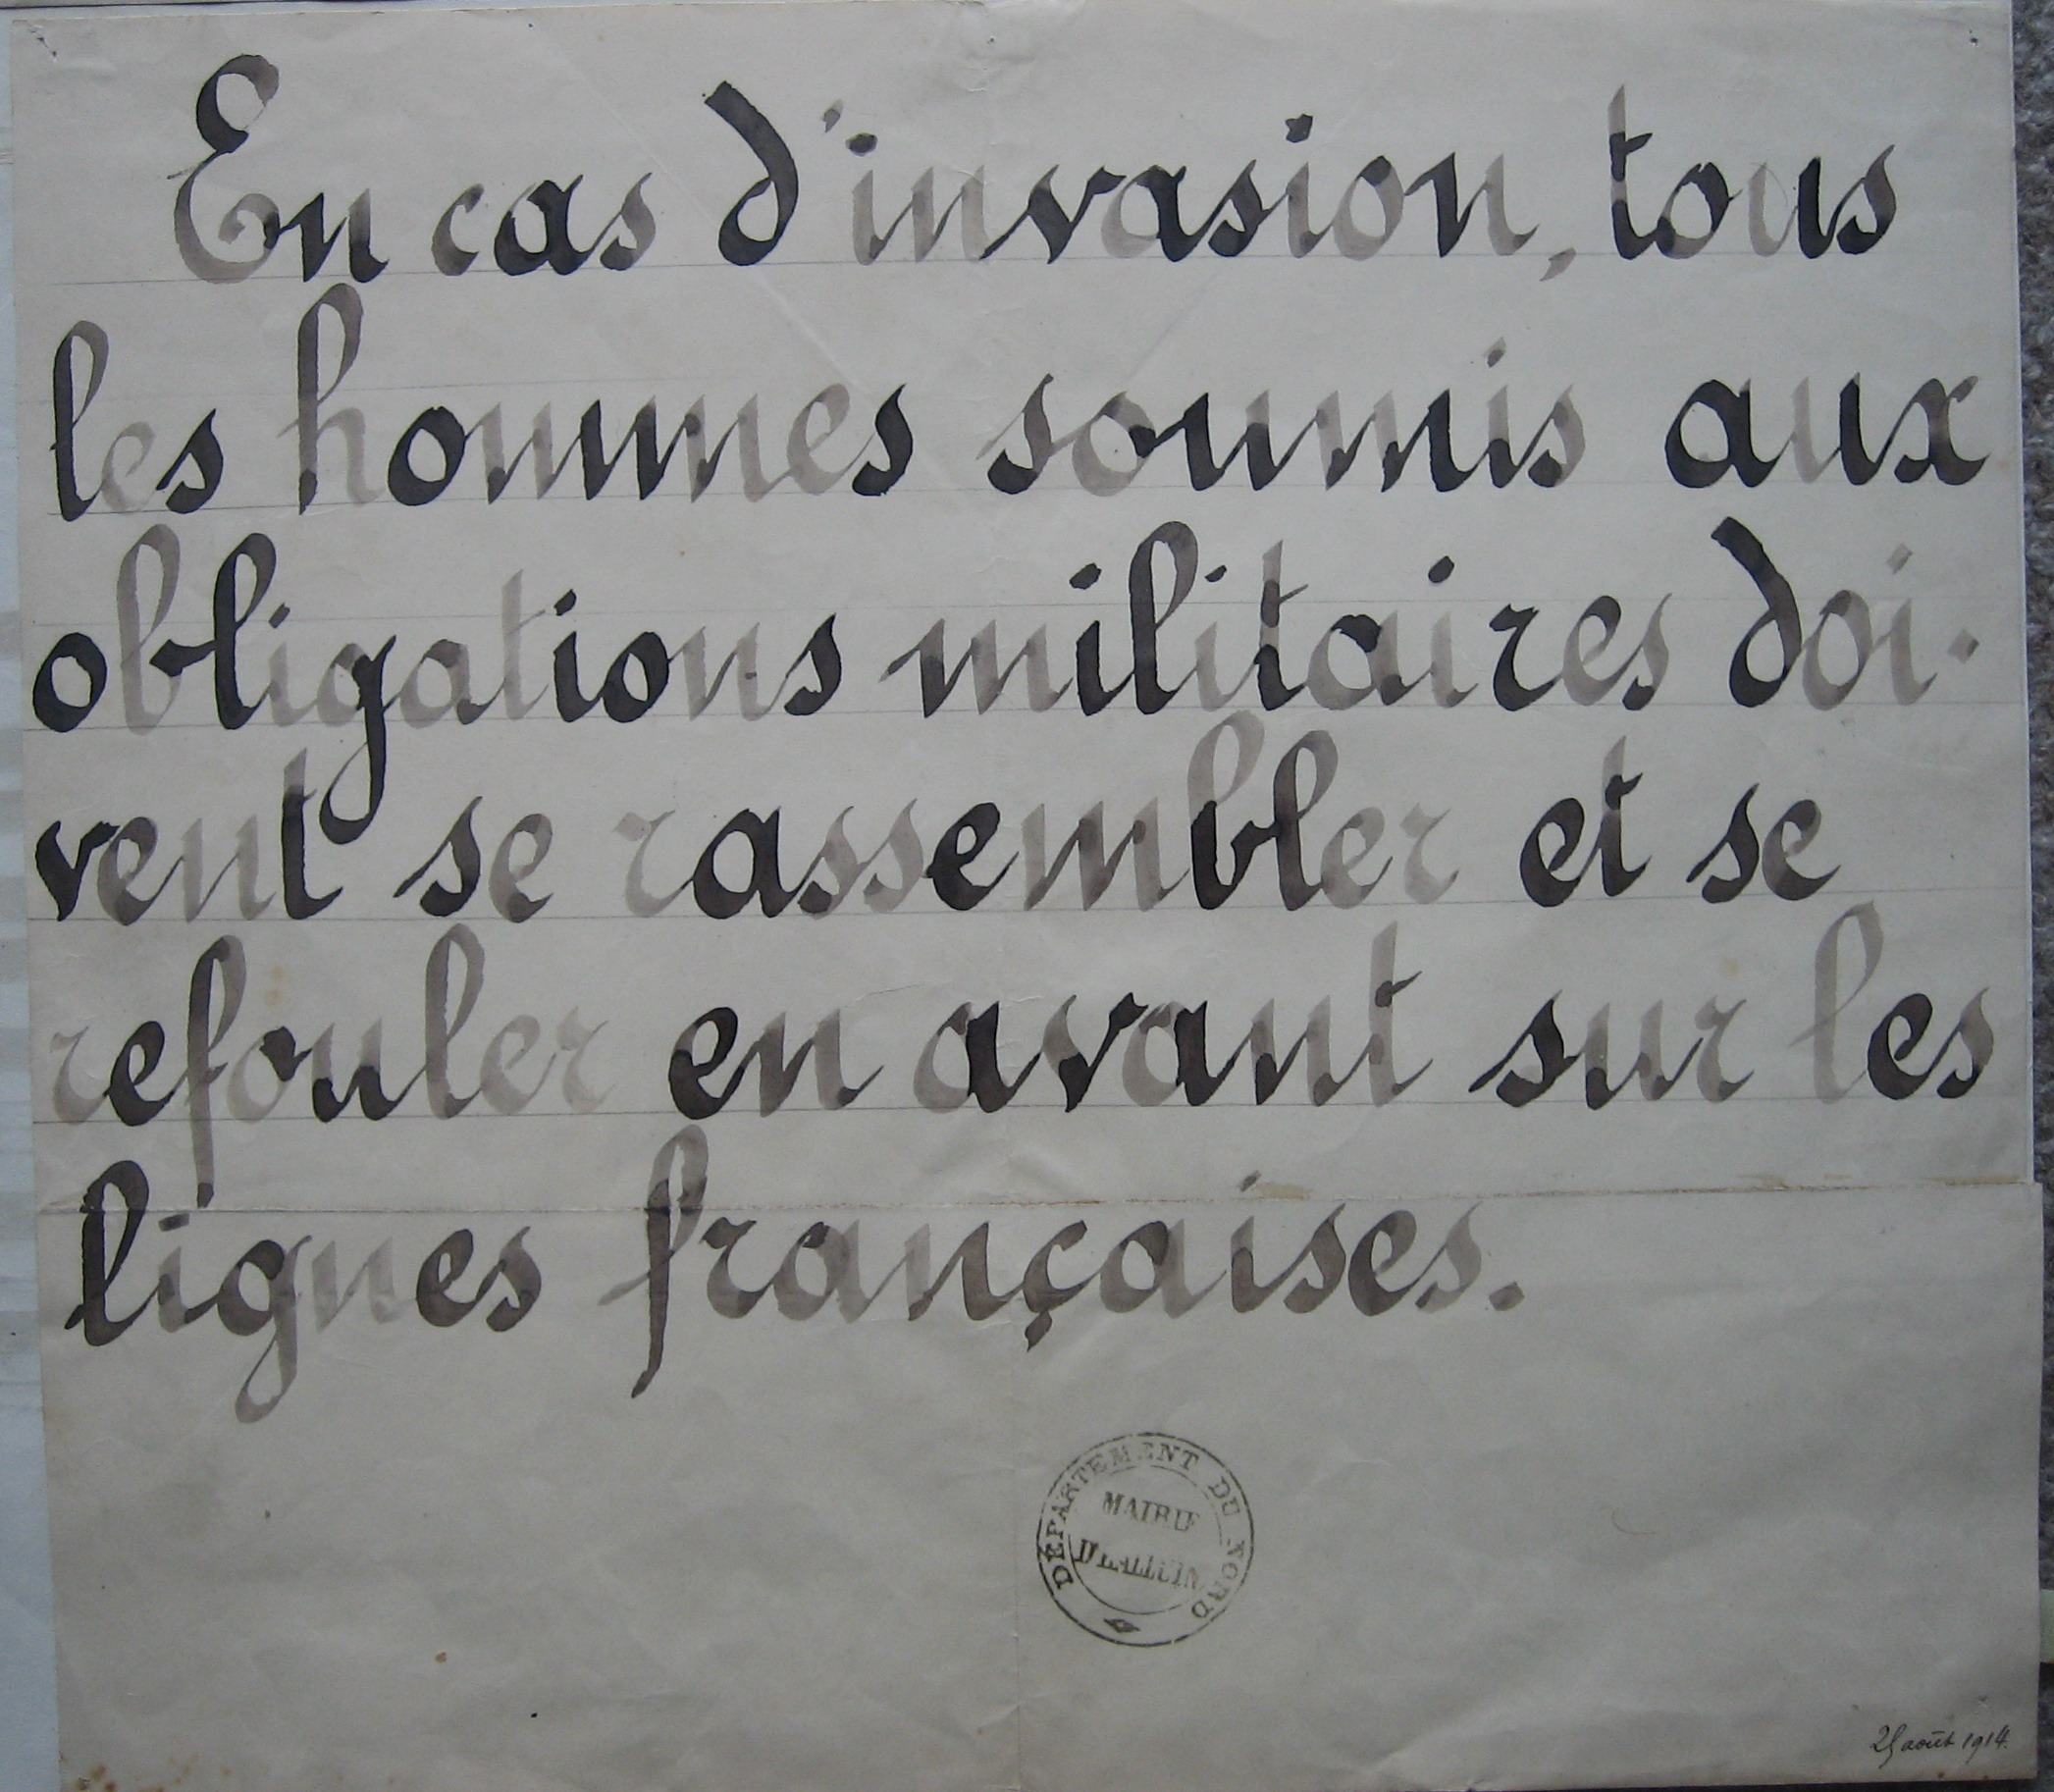 En cas d'invasion, tous
les hommes soumis aux
obligations militaires doi-
vent se rassembler et se
refouler en avant sur les
lignes françaises.
DÉPARTEMENT DU NORD
MAIRIE
D'HALLUIN
25 août 1914.